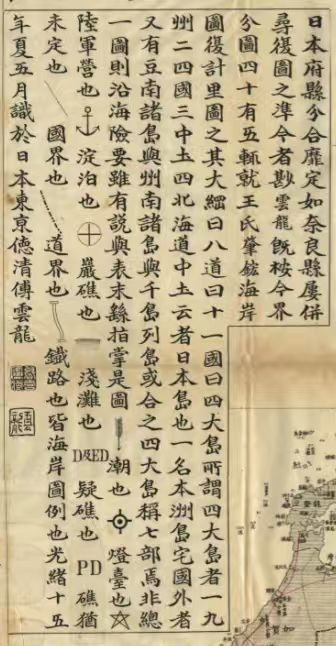 日本府縣分合靡定如奈良縣屢併
尋復圖之準今者尠雲龍旣按今界
分圖四十有五輒就王氏肇鋐海岸
圖復計里圖之其大綱曰八道曰十一國曰四大島所謂四大島者一九
州二四國三中土四北海道中土云者日本島也一名本洲島宅國外者
又有豆南諸島與州南諸島與千島列島或合之四大島稱七部焉非總
一圖則沿海險要雖有說與表末繇指掌是圖 潮也 燈臺也 ☆
陸軍營也 淀泊也 巖礁也 淺灘也 D&ED 疑礁也 PD 礁猶
未定也 國界也 道界也 鐵路也皆海岸圖例也光緒十五
年夏五月識於日本東京德清傅雲龍
加賀